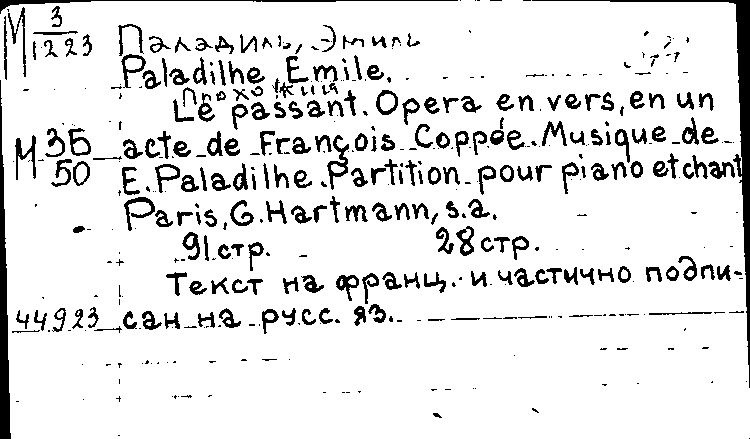 М 3/1223 Паладиль, Эмиль
Paladilhe, Emile.
Прохожий
Le passant. Opera en vers, en un
М 3Б/50 acte de François Coppée. Musique de
E. Paladilhe. Partition pour piano et chant
Paris, G. Hartmann, s.a.
91 стр. 28 стр.
Текст на франц. и частично подпи-
44923 сан на русс. яз.